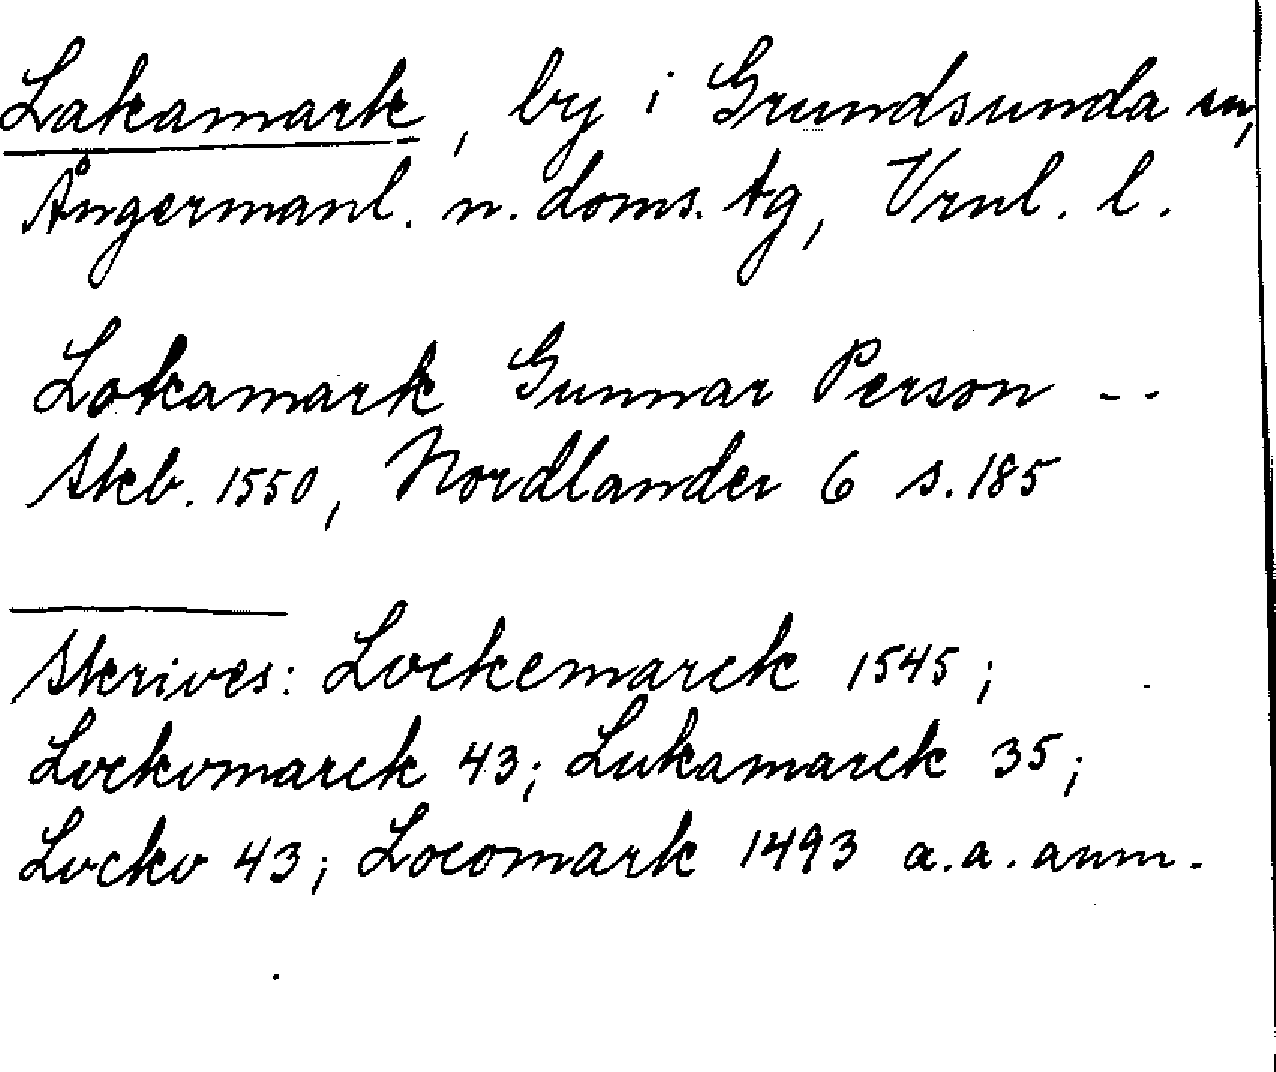 Lakamark, by i Grundsunda sn,
Ångermanl. n. doms. tg, Vrnl. l.
Lokamark Gunnar Person --
Skb. 1550, Nordlander 6 s. 185
Skrives: Lockemarck 1545;
Lockomarck 43; Lukamarck 35;
Locko 43; Locomark 1493 a.a. anm.